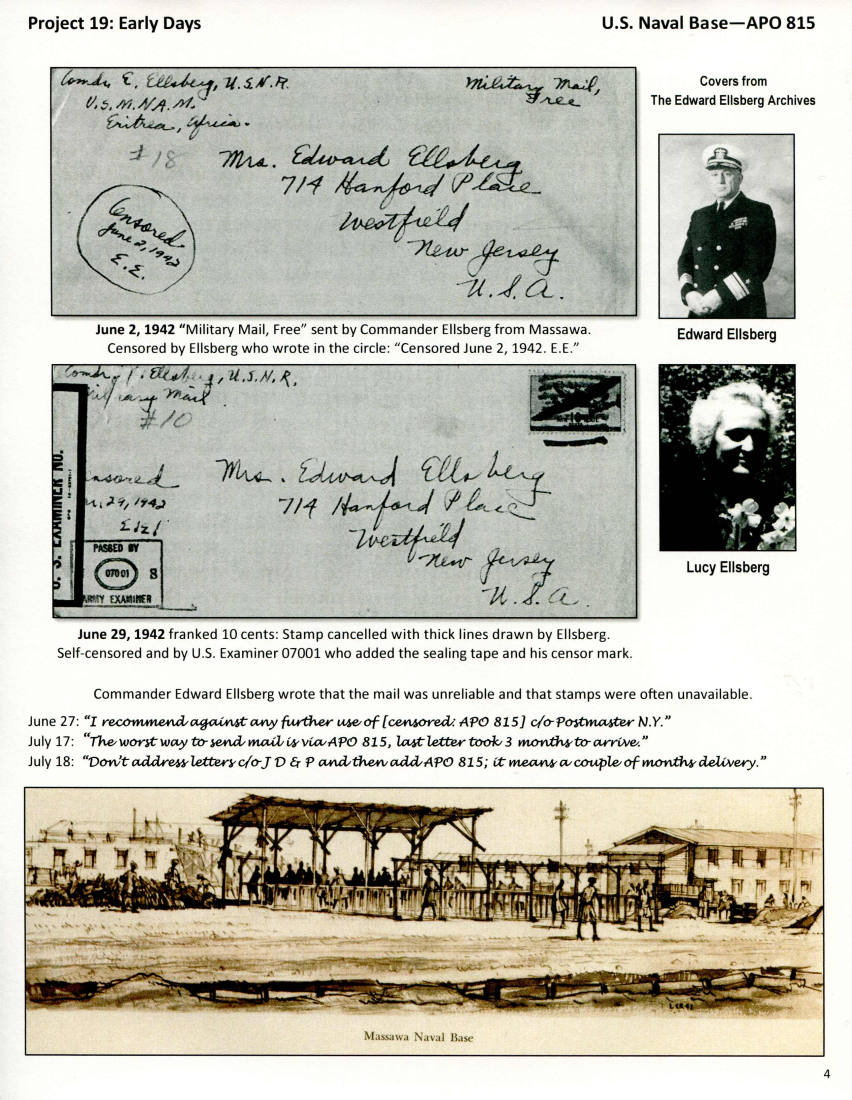 Project 19: Early Days
U.S. Naval Base—APO 815
Comdr. E. Ellsberg, U.S.N.R.
U.S.M.N.A.M.
Eritrea, Africa.
Military Mail,
Free
#18
Mrs. Edward Ellsberg
714 Hanford Place
Westfield
New Jersey
U.S.A.
Censored
June 2, 1942
E.E.
Covers from
The Edward Ellsberg Archives
Edward Ellsberg
June 2, 1942 “Military Mail, Free” sent by Commander Ellsberg from Massawa.
Censored by Ellsberg who wrote in the circle: “Censored June 2, 1942. E.E.”
Ellsberg, U.S.N.R.
Military Mail
#10
U. S. EXAMINER NO.
29, 1942
PASSED BY
07001 S
ARMY EXAMINER
Mrs. Edward Ellsberg
714 Hanford Place
Westfield
New Jersey
U.S.A.
Lucy Ellsberg
June 29, 1942 franked 10 cents: Stamp cancelled with thick lines drawn by Ellsberg.
Self-censored and by U.S. Examiner 07001 who added the sealing tape and his censor mark.
Commander Edward Ellsberg wrote that the mail was unreliable and that stamps were often unavailable.
June 27: “I recommend against any further use of [censored: APO 815] c/o Postmaster N.Y.”
July 17: “The worst way to send mail is via APO 815, last letter took 3 months to arrive.”
July 18: “Don’t address letters c/o J D & P and then add APO 815; it means a couple of months delivery.”
Massawa Naval Base
4